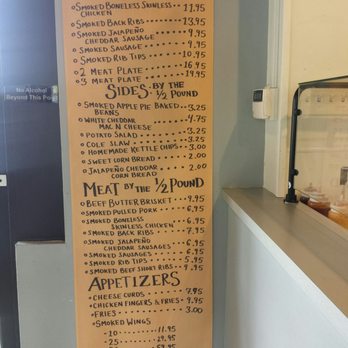 No Alcohol
Beyond This Po
Smoked Boneless Skinless
Chicken 11.95
Smoked Back Ribs 13.95
Smoked Jalapeño
Cheddar Sausage 9.95
Smoked Sausage 9.95
Smoked Rib Tips 10.95
2 Meat Plate 16.95
3 Meat Plate 19.95
Sides - By the 1/2 Pound
Smoked Apple Pie Baked
Beans 3.25
White Cheddar
Mac N Cheese 4.75
Potato Salad 3.25
Cole Slaw 3.25
Homemade Kettle Chips 3.00
Sweet Corn Bread 2.00
Jalapeño Cheddar
Corn Bread 2.00
Meat By the 1/2 Pound
Beef Butter Brisket 9.95
Smoked Pulled Pork 6.95
Smoked Boneless
Skinless Chicken 6.95
Smoked Back Ribs 7.95
Smoked Jalapeño
Cheddar Sausages 6.95
Smoked Sausages 6.95
Smoked Rib Tips 5.95
Smoked Beef Short Ribs 9.95
Appetizers
Cheese Curds 7.95
Chicken Fingers & Fries 9.95
Fries 3.00
Smoked Wings
10 11.95
25
50